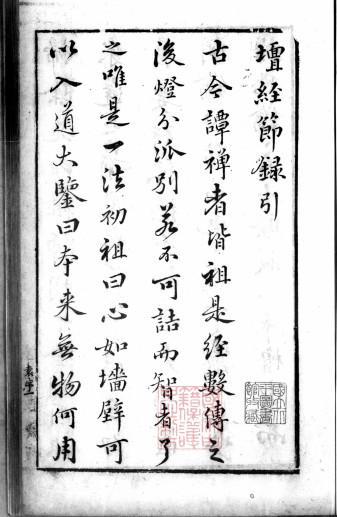 壇經節録引
古今譚禪者皆祖是經數傳之
後燈分派別若不可詰而智者了
之唯是一法初祖曰心如墻壁可
以入道大鑒曰本来無物何用